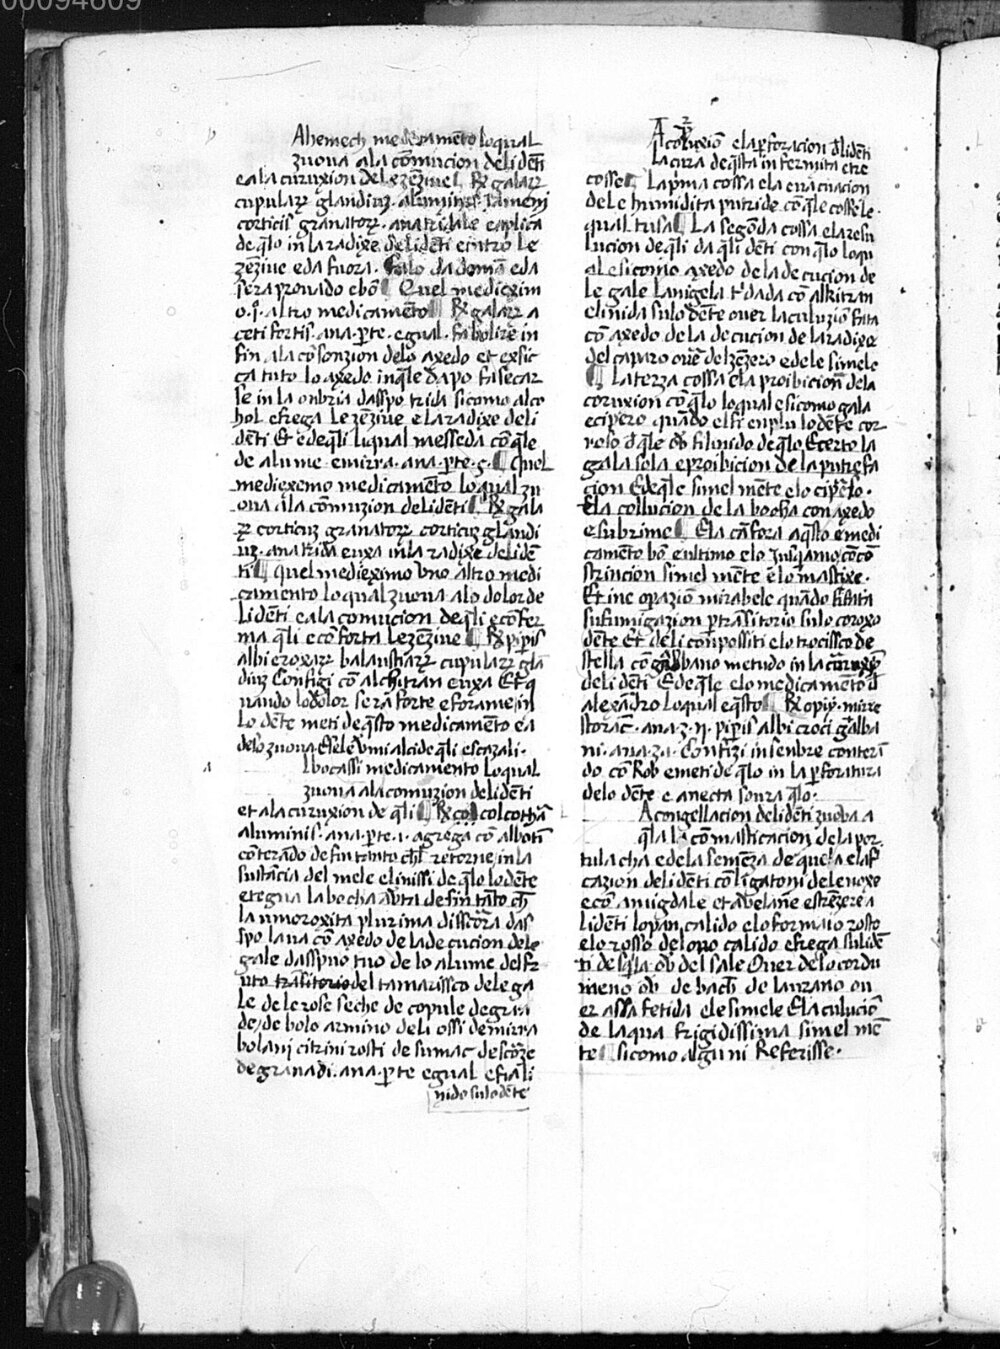 00094609
Ahemech medecamẽto loqual
zuova ala cõmucion deli dẽti
e ala curuxion dele zẽzive ¶ ℞ galarꝝ
cupularꝝ glandiuꝫ aluminis iameni
corticis granatorꝝ . ana tridale e aplica
de q̃lo in la radixe deli dẽti e intro le
zẽzive e da fuora . falo da doman e da
sera provado e bõ ¶ Quel medexim
o . ꝯ . altro medicamẽto ¶ ℞ galarꝝ a
ceti fortis . ana . ꝑte . egual . fa bolire in
fin ala cõsonzion delo axedo et exsic
ca tuto lo axedo in q̃le dapo fa secar
se in la onbria daspo trida sicomo alco
hol e frega le zẽzive e la radixe deli
dẽti Et e de q̃li lu qual messeda cõ q̃le
de alume e mirra . ana . ꝑte . ꝯ . ¶ Quel
mediexemo medicamẽto lo qual zu
ova ala cõmuzion deli denti ¶ ℞ gala
ꝝ corticuꝫ granatorꝝ corticuꝫ glandi
uꝫ . ana trida e uxa in la radixe deli dẽ
ti ¶ quel medieximo uno altro medi
camento lo qual zuova alo dolor de
li denti e ala comucion de q̃li e cõfer
ma q̃li e cõforta le zẽzive ¶ ℞ piperis
albi e roxarꝝ balaustiarꝝ cupularꝝ glã
diuꝫ Confizi cõ alchitran e uxa Et q
uando lo dolor sera forte e forame in
lo dẽte meti de q̃sto medicamẽto e a
delo zuova
lbocassi medicamento lo qual
zuova ala comuzion deli denti
et ala curuxion de q̃li ¶ ℞ colcothã
aluminis . ana . ꝑte . i . agrega cõ alboti
cõterãdo de fin tanto ch̃l retorne in la
sustãcia del mele e linissi de q̃lo lo dẽte
e tegna la bocha avta de fin tãto ch̃
la umoroxita plurima disscõra das
spo lava cõ axedo de la de cucion dele
gale daspuo tuo de lo alume del
uto del tamarissco de le ga
le de le rose seche de copule de gran
de de bolo armino deli ossi de mirra
bolani citrini rosti de sumac de scõrze
de granadi . ana . ꝑte egual e fali
nido sulo dẽte
A coruxiõ e la ꝑforacion d̃li dẽti
La cura de q̃sta infermita e tre
cosse ¶ La pͥma cossa e la evacuacion
de le humidita putride cõ q̃le cosse le
qual tu sa ¶ La segõda cossa e la resu
lucion de q̃li da q̃li dẽti con q̃lo lo qu
al e sicomo axedo de la de cucion de
le gale La nigela tͥdada cõ alkitran
e linida sulo dẽte over la culuziõ fata
cõ axedo de la de cucion de la radixe
del caparo over del zẽzero e de le simele
¶ La terza cossa e la proibicion de la
coruxion cõ q̃lo lo qual e sicomo gala
e cipero quãdo el fi enplu lo dẽte cor
roso d̃ q̃le ob̃ fi linido de q̃lo E certo la
gala sola e proibicion de la putrefa
cion E de q̃le simel mẽte e lo cipͥeso .
E la collucion de la bocha con axedo
e subrime ¶ E la cãfora a q̃sto e medi
camẽto bõ e ultimo e lo Jusq̃amo cõ cõ
strincion simel mẽte e lo mastixe .
Et in e opraziõ mirabele quãdo fi fata
sufumigazion ꝑ trassitorio sulo coroxo
dẽte Et deli conpossiti e lo trocissco de
stella cõ galbbano metudo in la coruxiõ
deli dẽti E de q̃le e lo medicamẽto d̃
alexãdro lo qual e q̃sto ¶ ℞ opiy . mirre
storac̃ . ana . ʒ . ij . piperis albi croci galba
ni . ana . ʒ i . Confizi in senbre conterã
do cõ Rob e meti de q̃lo in la ꝑforatura
delo dẽte e anecta sovra q̃lo .
A congellacion deli dẽti zuova a
q̃la la cõ masticacion de la por
tulacha e de la semẽza de quela e la
cazion deli dẽti cõ li gatoni dele noxe
e cõ amigdale et avelane e strẽzere a
li dẽti lo pan calido e lo formaio rosto
e lo rosso de lo ovo calido e frega su li dẽ
ti de sp̃la ob̃ del sale Over delo cordu
meno ob̃ de bach̃ de laurano ou
er assa fetida e le simele E la culuciõ
de laqua frigidissima simel mẽ
te ¶ sicomo alguni Referisse .